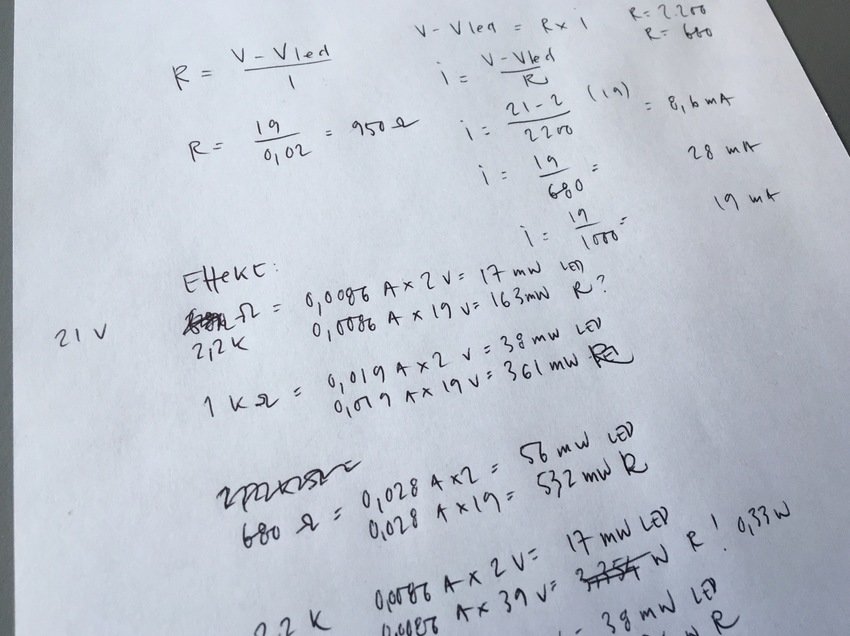 V - Vled = R x i R = 2.200
R = 680
R = V - Vled / I
i = V - Vled / R
R = 19 / 0,02 = 950 Ω
i = 21 - 2 / 2200 (19) = 8,6 mA
i = 19 / 680 = 28 mA
i = 19 / 1000 = 19 mA
EffEKt:
21 V
Ω = 0,0086 A x 2 V = 17 mW LED
2,2 K 0,0086 A x 19 V = 163 mW R?
1 K Ω = 0,019 A x 2 V = 38 mW LED
0,019 A x 19 V = 361 mW R
680 Ω = 0,028 A x 2 = 56 mW LED
0,028 A x 19 = 532 mW R
0,0086 A x 2 V = 17 mW LED
2,2 K 0,0086 A x 39 V = W R! 0,33 W
= 38 mW LED
W R